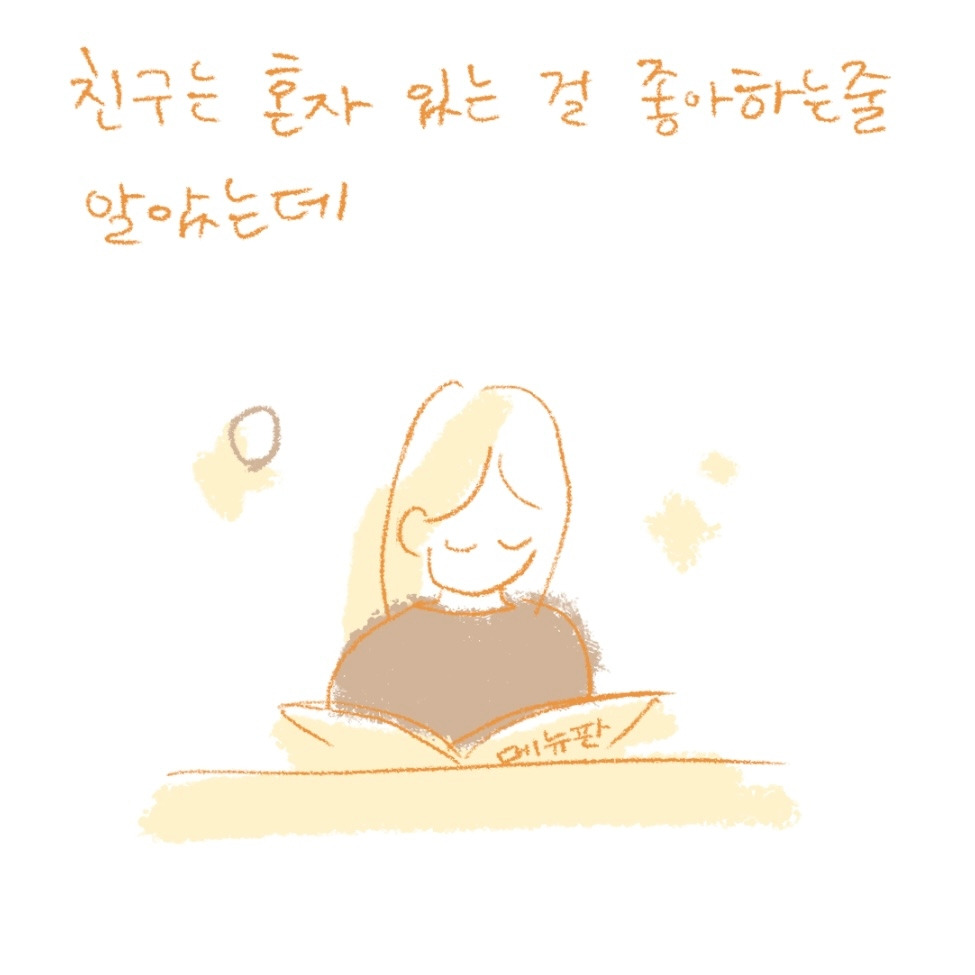 친구는 혼자 있는 걸 좋아하는줄
알았는데
메뉴판